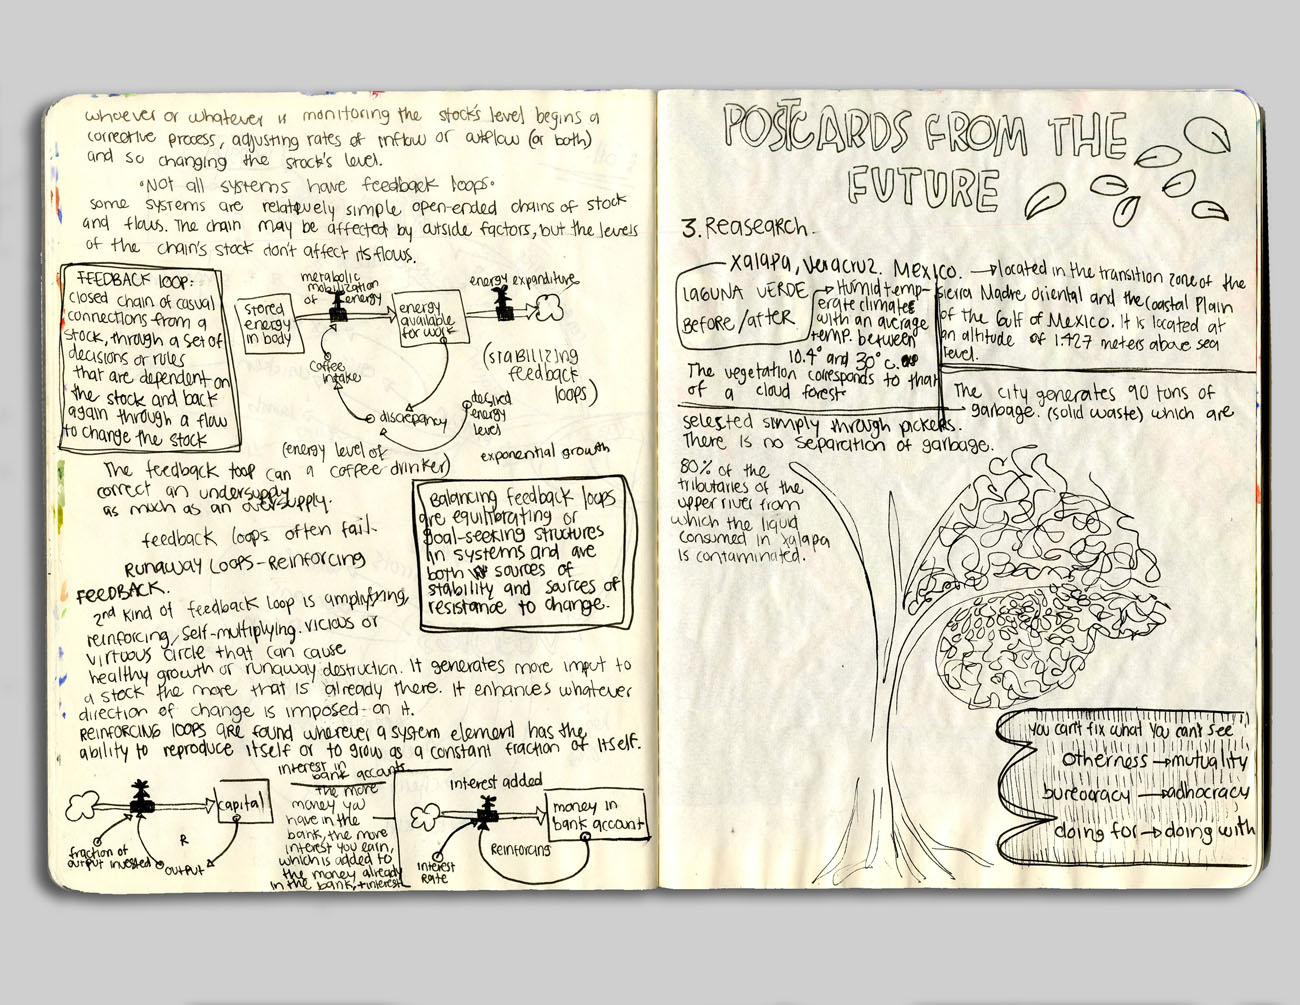 whoever or whatever is monitoring the stock's level begins a
corrective process, adjusting rates of inflow or outflow (or both)
and so changing the stock's level.
·Not all systems have feedback loops·
some systems are relatively simple open-ended chains of stock
and flows. The chain may be affected by outside factors, but the levels
of the chain's stock don't affect its flows.
FEEDBACK LOOP:
closed chain of casual
connections from a
stock, through a set of
decisions or rules
that are dependent on
the stock and back
again through a flow
to change the stock
stored
energy
in body
metabolic
mobilization
of energy
energy
available
for work
energy expenditure
coffee
intake
discrepancy
desired
energy
level
(stabilizing
feedback
loops)
(energy level of
a coffee drinker)
exponential growth
The feedback loop can
correct an undersupply
as much as an oversupply.
feedback loops often fail.
Balancing feedback loops
are equilibrating or
goal-seeking structures
in systems and are
both sources of
stability and sources of
resistance to change.
RUNAWAY LOOPS-REINFORCING
FEEDBACK.
2nd kind of feedback loop is amplyfying,
reinforcing, self-multiplying. vicious or
virtuous circle that can cause
healthy growth or runaway destruction. It generates more imput to
a stock the more that is already there. It enhances whatever
direction of change is imposed-on it.
REINFORCING LOOPS are found wherever a system element has the
ability to reproduce itself or to grow as a constant fraction of itself.
capital
fraction of
output invested
R
output
interest in
bank accounts
the more
money you
have in the
bank, the more
interest you earn,
which is added to
the money already
in the bank, +interest
interest added
money in
bank account
Reinforcing
interest
rate
POSTCARDS FROM THE
FUTURE
3. Reasearch.
Xalapa, Veracruz. Mexico.
→located in the transition zone of the
Sierra Madre Oriental and the Coastal Plain
of the Gulf of Mexico. It is located at
an altitude of 1.427 meters above sea
level.
LAGUNA VERDE
BEFORE/AFTER
→ Humid temp-
erate climates
with an average
temp. between
10.4° and 30° c.
The vegetation corresponds to that
of a cloud forest
The city generates 90 tons of
garbage. (solid waste) which are
selected simply through pickers.
There is no separation of garbage.
80% of the
tributaries of the
upper river from
which the liquid
consumed in xalapa
is contaminated.
"you can't fix what you can't see"
otherness→mutuality
bureocracy→adhocracy
doing for→doing with